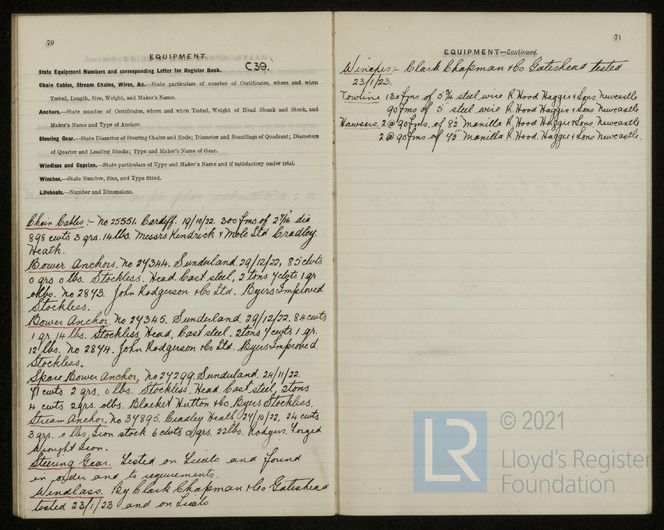 70
EQUIPMENT.
State Equipment Numbers and corresponding Letter for Register Book. C39.
Chain Cables, Stream Chains, Wires, &c.—State particulars of number of Certificates, where and when
Tested, Length, Size, Weight, and Maker's Name.
Anchors.—State number of Certificates, where and when Tested, Weight of Head Shank and Stock, and
Maker's Name and Type of Anchor.
Steering Gear.—State Diameter of Steering Chains and Rods; Diameter and Scantlings of Quadrant; Diameters
of Quarter and Leading Blocks; Type and Maker's Name of Gear.
Windlass and Capstan.—State particulars of Type and Maker's Name and if satisfactory under trial.
Winches.—State Number, Size, and Type fitted.
Lifeboats.—Number and Dimensions.
Chain Cables:- No 25551. Cardiff. 19/10/22. 300 fms of 2 7/16 dia
898 cwts 3 qrs. 14 lbs. Messrs Kendrick & Mole Ltd Cradley
Heath.
Bower Anchors. No 27344. Sunderland. 29/12/22. 85 cwts
0 qrs 0 lbs. Stockless. Head. Cast steel, 2 tons 4 cwts 1 qr
0 lbs. No 2873. John Rodgerson & Co Ltd. Byers Improved
Stockless.
Bower Anchor, No 27345, Sunderland 29/12/22. 84 cwts
1 qr 14 lbs. Stockless Head, Cast steel. 2 tons 4 cwts 1 qr.
12 lbs. No 2874. John Rodgerson & Co Ltd. Byers Improved.
Stockless.
Spare Bower Anchor, No 27299. Sunderland. 24/11/22.
71 cwts 2 qrs. 0 lbs. Stockless. Head. Cast steel, 2 tons
4 cwts 2 qrs. 0 lbs. Blacket Hutton & Co. Byers Stockless.
Stream Anchor. No 37895. Cradley Heath. 24/10/22. 24 cwts
3 qrs. 0 lbs Iron stock 6 cwts 0 qrs. 22 lbs. Rodgers. Forged
Wrought Iron.
Steering Gear. Tested on Trials and found
in order and to requirements.
Windlass. By Clark Chapman & Co Gateshead
tested 23/1/23 and on Trials
71
EQUIPMENT—Continued.
Winches:- Clark Chapman & Co Gateshead tested
23/1/23.
Towline 130 fms of 5 steel wire R. Hood Haggie & Sons Newcastle
90 fms of 5" steel wire R. Hood Haggie & Sons Newcastle
Hawsers. 2 @ 90 fms. of 8½" Manilla R. Hood. Haggie & Sons Newcastle
2 @ 90 fms of Manilla R. Hood. Haggie & Sons Newcastle.
LR
© 2021
Lloyd's Register
Foundation